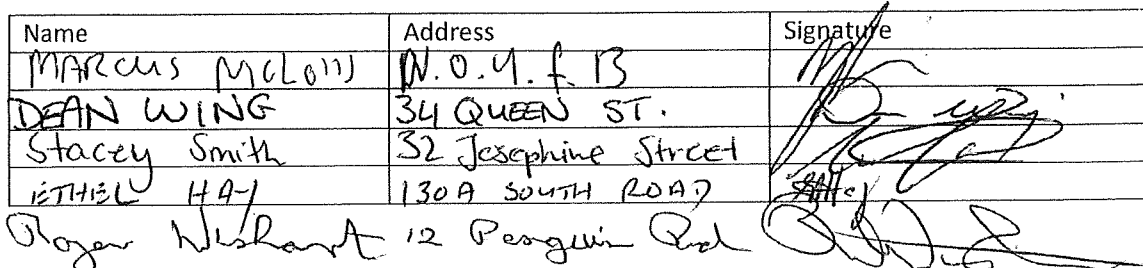 Name Address Signature
MARCUS N.O.Y.F.B
DEAN WING 34 QUEEN ST.
Stacey Smith 32 Josephine Street
ETHEL HAY 130A SOUTH ROAD
Roger Wishart 12 Penguin